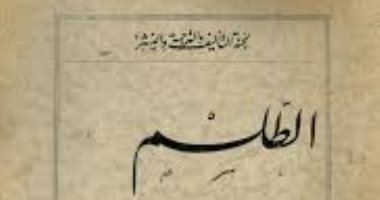 لجنة التأليف والترجمة والنشر
الطلسم